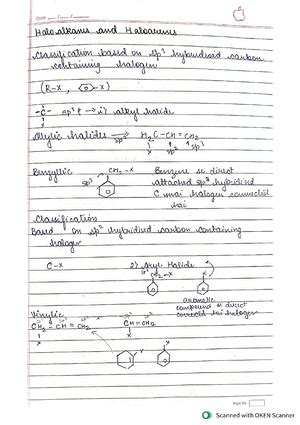 Date ___/___/___
Haloalkanes and Haloarenes
Classification based on sp3 hybridised carbon
containing halogen
(R-X, -X)
-C- sp3 → alkyl halide
Allylic halides sp3 H2C-CH=CH2
X sp3 sp2 sp2
Benzyllic CH2-X Benzene se direct
sp3 attached sp3 hybridised
C mai halogen connected
hai
Classification
Based on sp2 hybridised carbon containing
halogen
C-X 2) Aryl Halide X
CH2-X
aromatic
compound se direct
connected hai halogen
Vinylic
CH2-CH=CH2 CH=CH2
X X
X X
Page No.
Scanned with OKEN Scanner